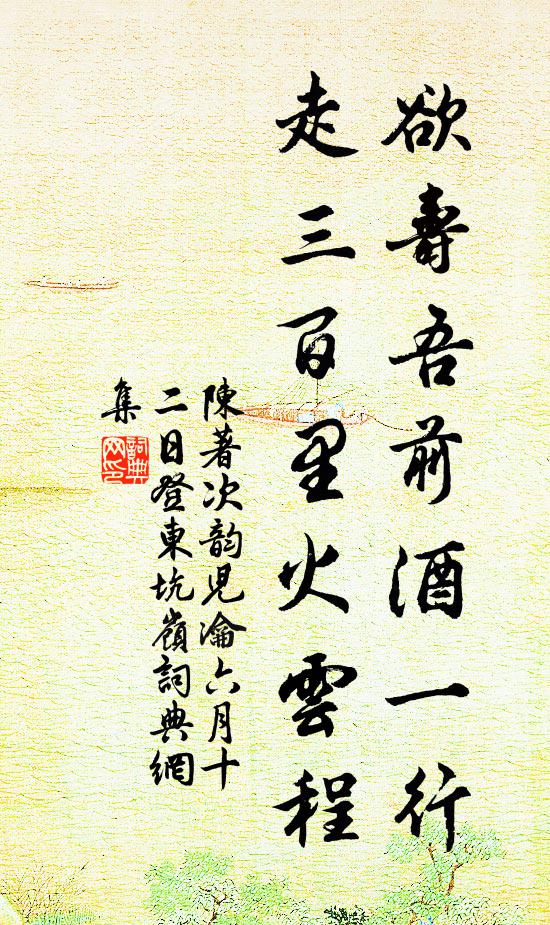 欲壽吾前酒一行
走三百里火雲程
陳著次韵兒瀹六月十
二日登東坑嶺詞典網
集
詞典
网印